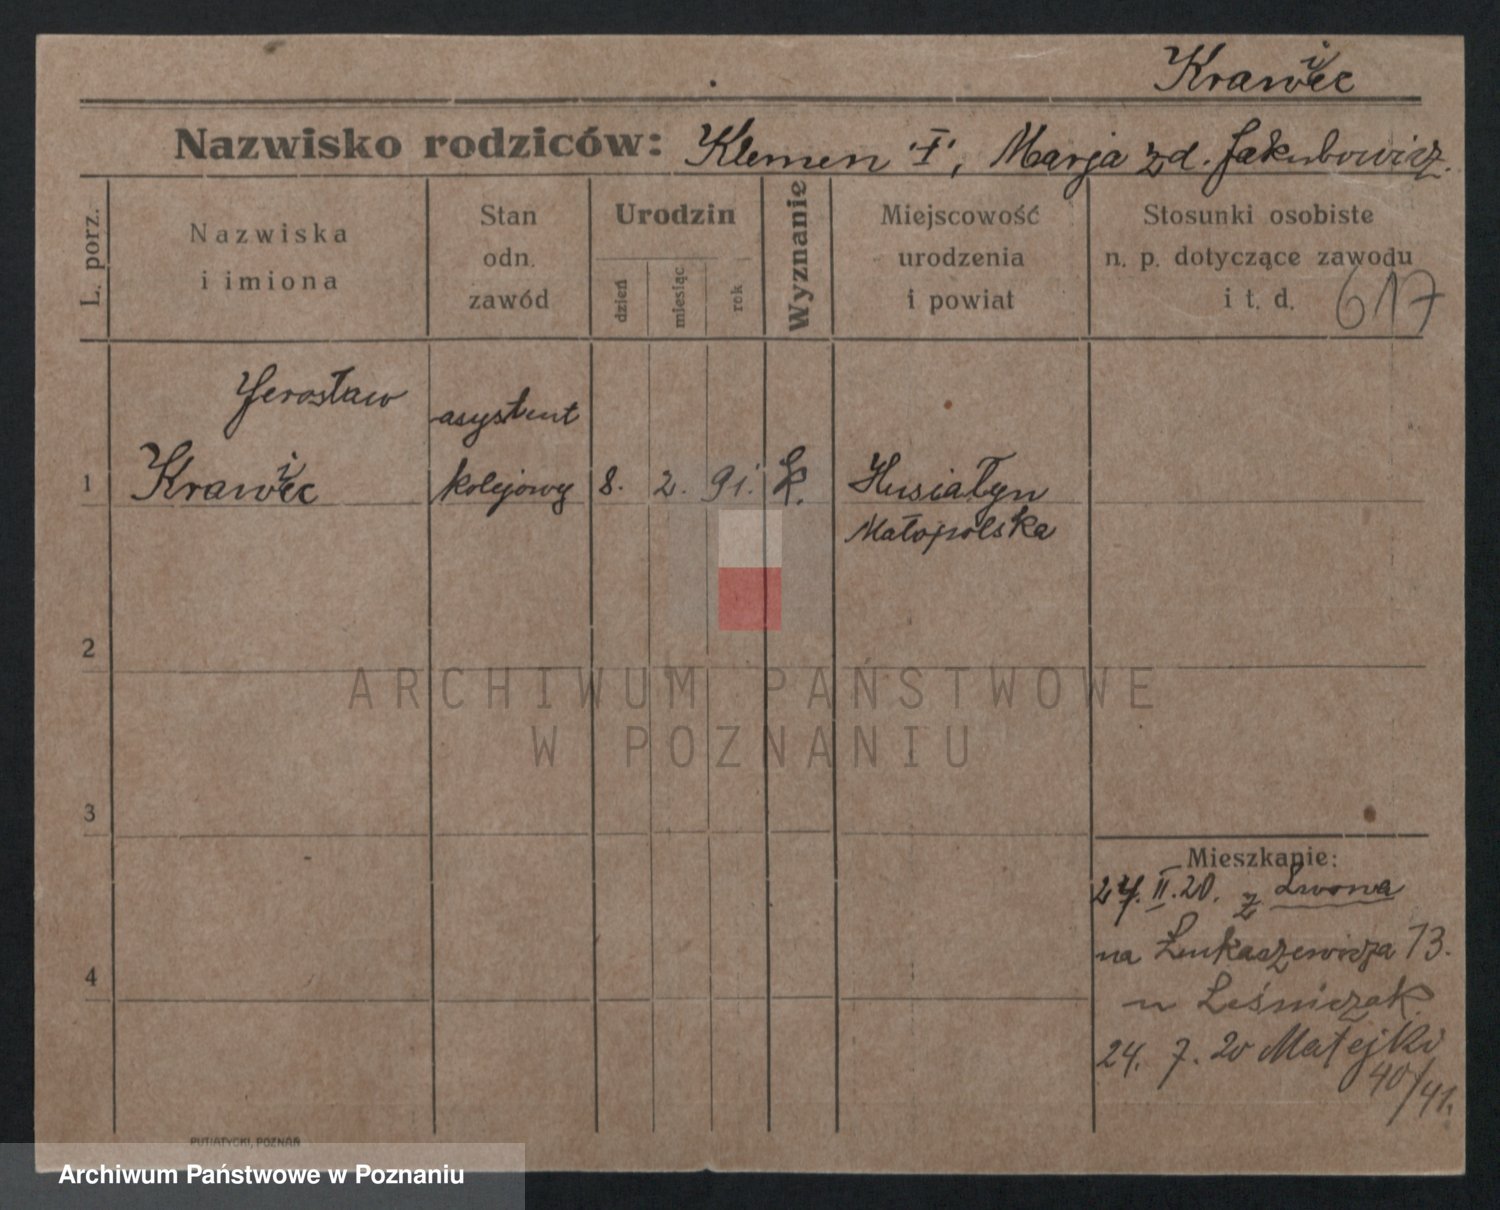 Krawiec
Nazwisko rodziców: Klemen "I", Marja zd. Jakubowicz.
L. porz.
Nazwiska
i imiona
Stan
odn.
zawód
Urodzin
dzień
miesiąc
rok
Wyznanie
Miejscowość
urodzenia
i powiat
Stosunki osobiste
n. p. dotyczące zawodu
i t. d.
617
Jerosław
asystent
1 Krawiec kolejowy 8. 2. 91. k. Husiatyn
Małopolska
2
ARCHIWUM PAŃSTWOWE
W POZNANIU
3
Mieszkanie:
24. II. 20. z Lwowa
na Łukaszewicza 13.
u Leśniczak
4
24. 7. 20 Matejki
40/41.
PUTIATYCKI, POZNAŃ
Archiwum Państwowe w Poznaniu